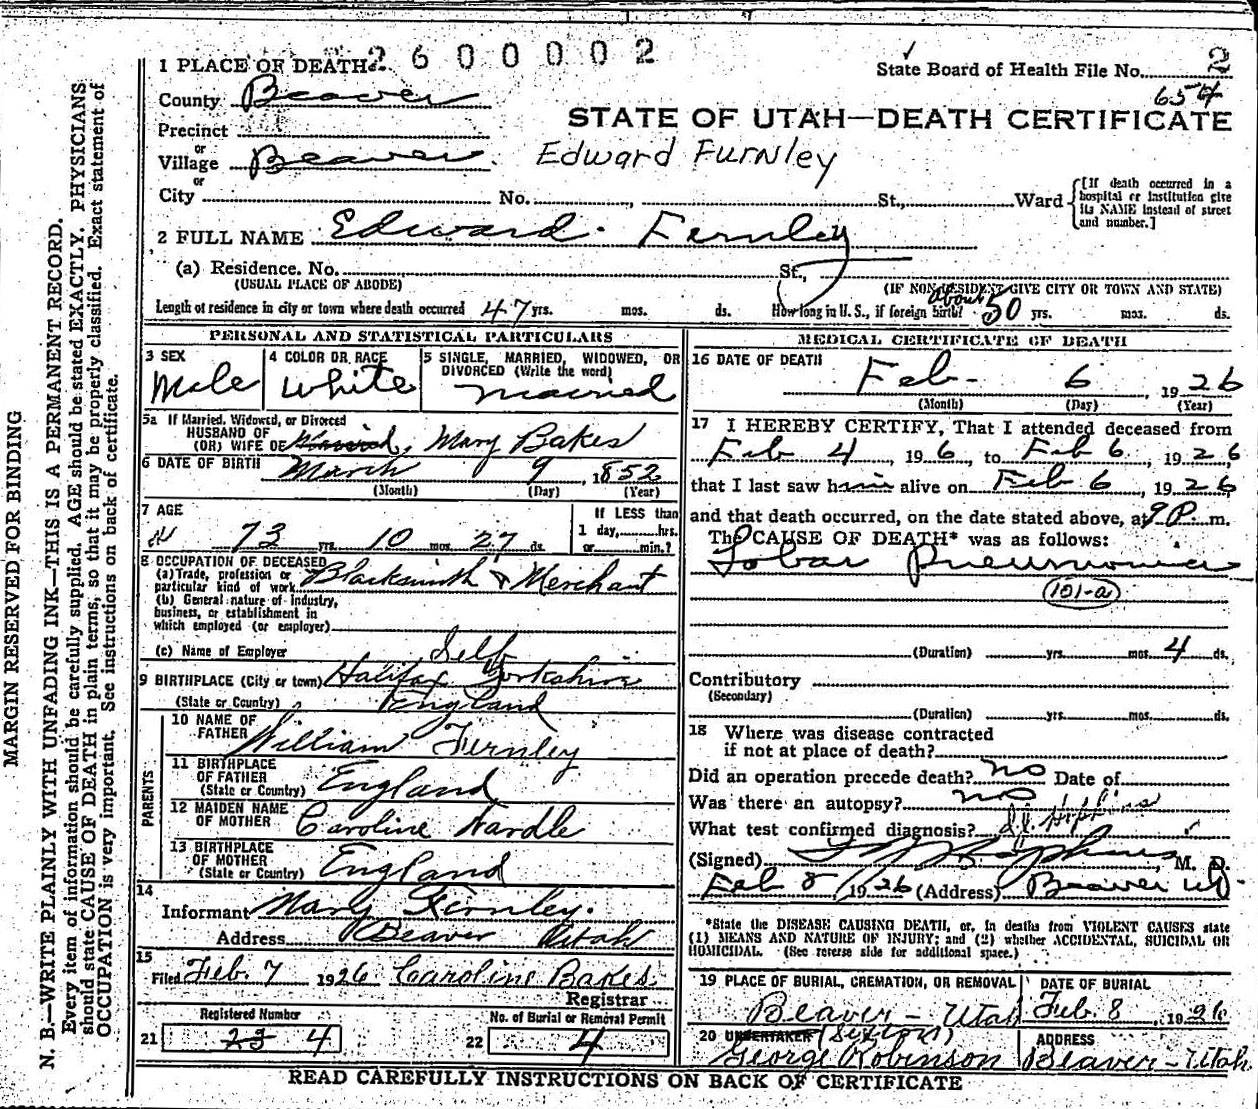 2600002
1 PLACE OF DEATH
State Board of Health File No. 2
654
County Beaver
STATE OF UTAH—DEATH CERTIFICATE
Precinct
or
Village Beaver. Edward Furnley
or
City No. St., Ward
[If death occurred in a
hospital or institution give
its NAME instead of street
and number.]
2 FULL NAME Edward Fernley
(a) Residence. No. St.,
(USUAL PLACE OF ABODE) (IF NONRESIDENT GIVE CITY OR TOWN AND STATE)
Length of residence in city or town where death occurred 47 yrs. mos. ds. How long in U. S., if foreign birth? about 50 yrs. mos. ds.
PERSONAL AND STATISTICAL PARTICULARS
3 SEX
Male
4 COLOR OR RACE
White
5 SINGLE, MARRIED, WIDOWED, OR
DIVORCED (Write the word)
Married
5a If Married, Widowed, or Divorced
HUSBAND OF
(OR) WIFE OF Mary Bakes
6 DATE OF BIRTH March 9 1852
(Month) (Day) (Year)
7 AGE
73 yrs. 10 mos. 27 ds.
If LESS than
1 day, hrs.
or min.?
8 OCCUPATION OF DECEASED
(a) Trade, profession or
particular kind of work Blacksmith & Merchant
(b) General nature of industry,
business, or establishment in
which employed (or employer)
(c) Name of Employer Self
9 BIRTHPLACE (City or town) Halifax Yorkshire
(State or Country) England
PARENTS
10 NAME OF
FATHER William Fernley
11 BIRTHPLACE
OF FATHER
(State or Country) England
12 MAIDEN NAME
OF MOTHER Caroline Nardle
13 BIRTHPLACE
OF MOTHER
(State or Country) England
14
Informant Mary Fernley.
Address Beaver Utah
15
Filed Feb. 7 1926 Caroline Bakes
Registrar
Registered Number
21 23 4
No. of Burial or Removal Permit
22 4
MEDICAL CERTIFICATE OF DEATH
16 DATE OF DEATH
Feb 6 1926
(Month) (Day) (Year)
17 I HEREBY CERTIFY, That I attended deceased from
Feb 4, 1926, to Feb 6, 1926
that I last saw him alive on Feb 6, 1926
and that death occurred, on the date stated above, at 9 P. m.
The CAUSE OF DEATH* was as follows:
Lobar Pneumonia
101-a
(Duration) yrs. mos. 4 ds.
Contributory
(Secondary)
(Duration) yrs. mos. ds.
18 Where was disease contracted
if not at place of death?
Did an operation precede death? no Date of
Was there an autopsy? no
What test confirmed diagnosis?
(Signed) M. D.
Feb 8, 1926 (Address) Beaver Ut.
*State the DISEASE CAUSING DEATH, or, in deaths from VIOLENT CAUSES state
(1) MEANS AND NATURE OF INJURY; and (2) whether ACCIDENTAL, SUICIDAL OR
HOMICIDAL. (See reverse side for additional space.)
19 PLACE OF BURIAL, CREMATION, OR REMOVAL
Beaver - Utah
DATE OF BURIAL
Feb. 8, 1926
20 UNDERTAKER (Sexton)
George Robinson
ADDRESS
Beaver - Utah.
READ CAREFULLY INSTRUCTIONS ON BACK OF CERTIFICATE
MARGIN RESERVED FOR BINDING
N. B.—WRITE PLAINLY WITH UNFADING INK—THIS IS A PERMANENT RECORD.
Every item of information should be carefully supplied. AGE should be stated EXACTLY. PHYSICIANS
should state CAUSE OF DEATH in plain terms, so that it may be properly classified. Exact statement of
OCCUPATION is very important. See instructions on back of certificate.